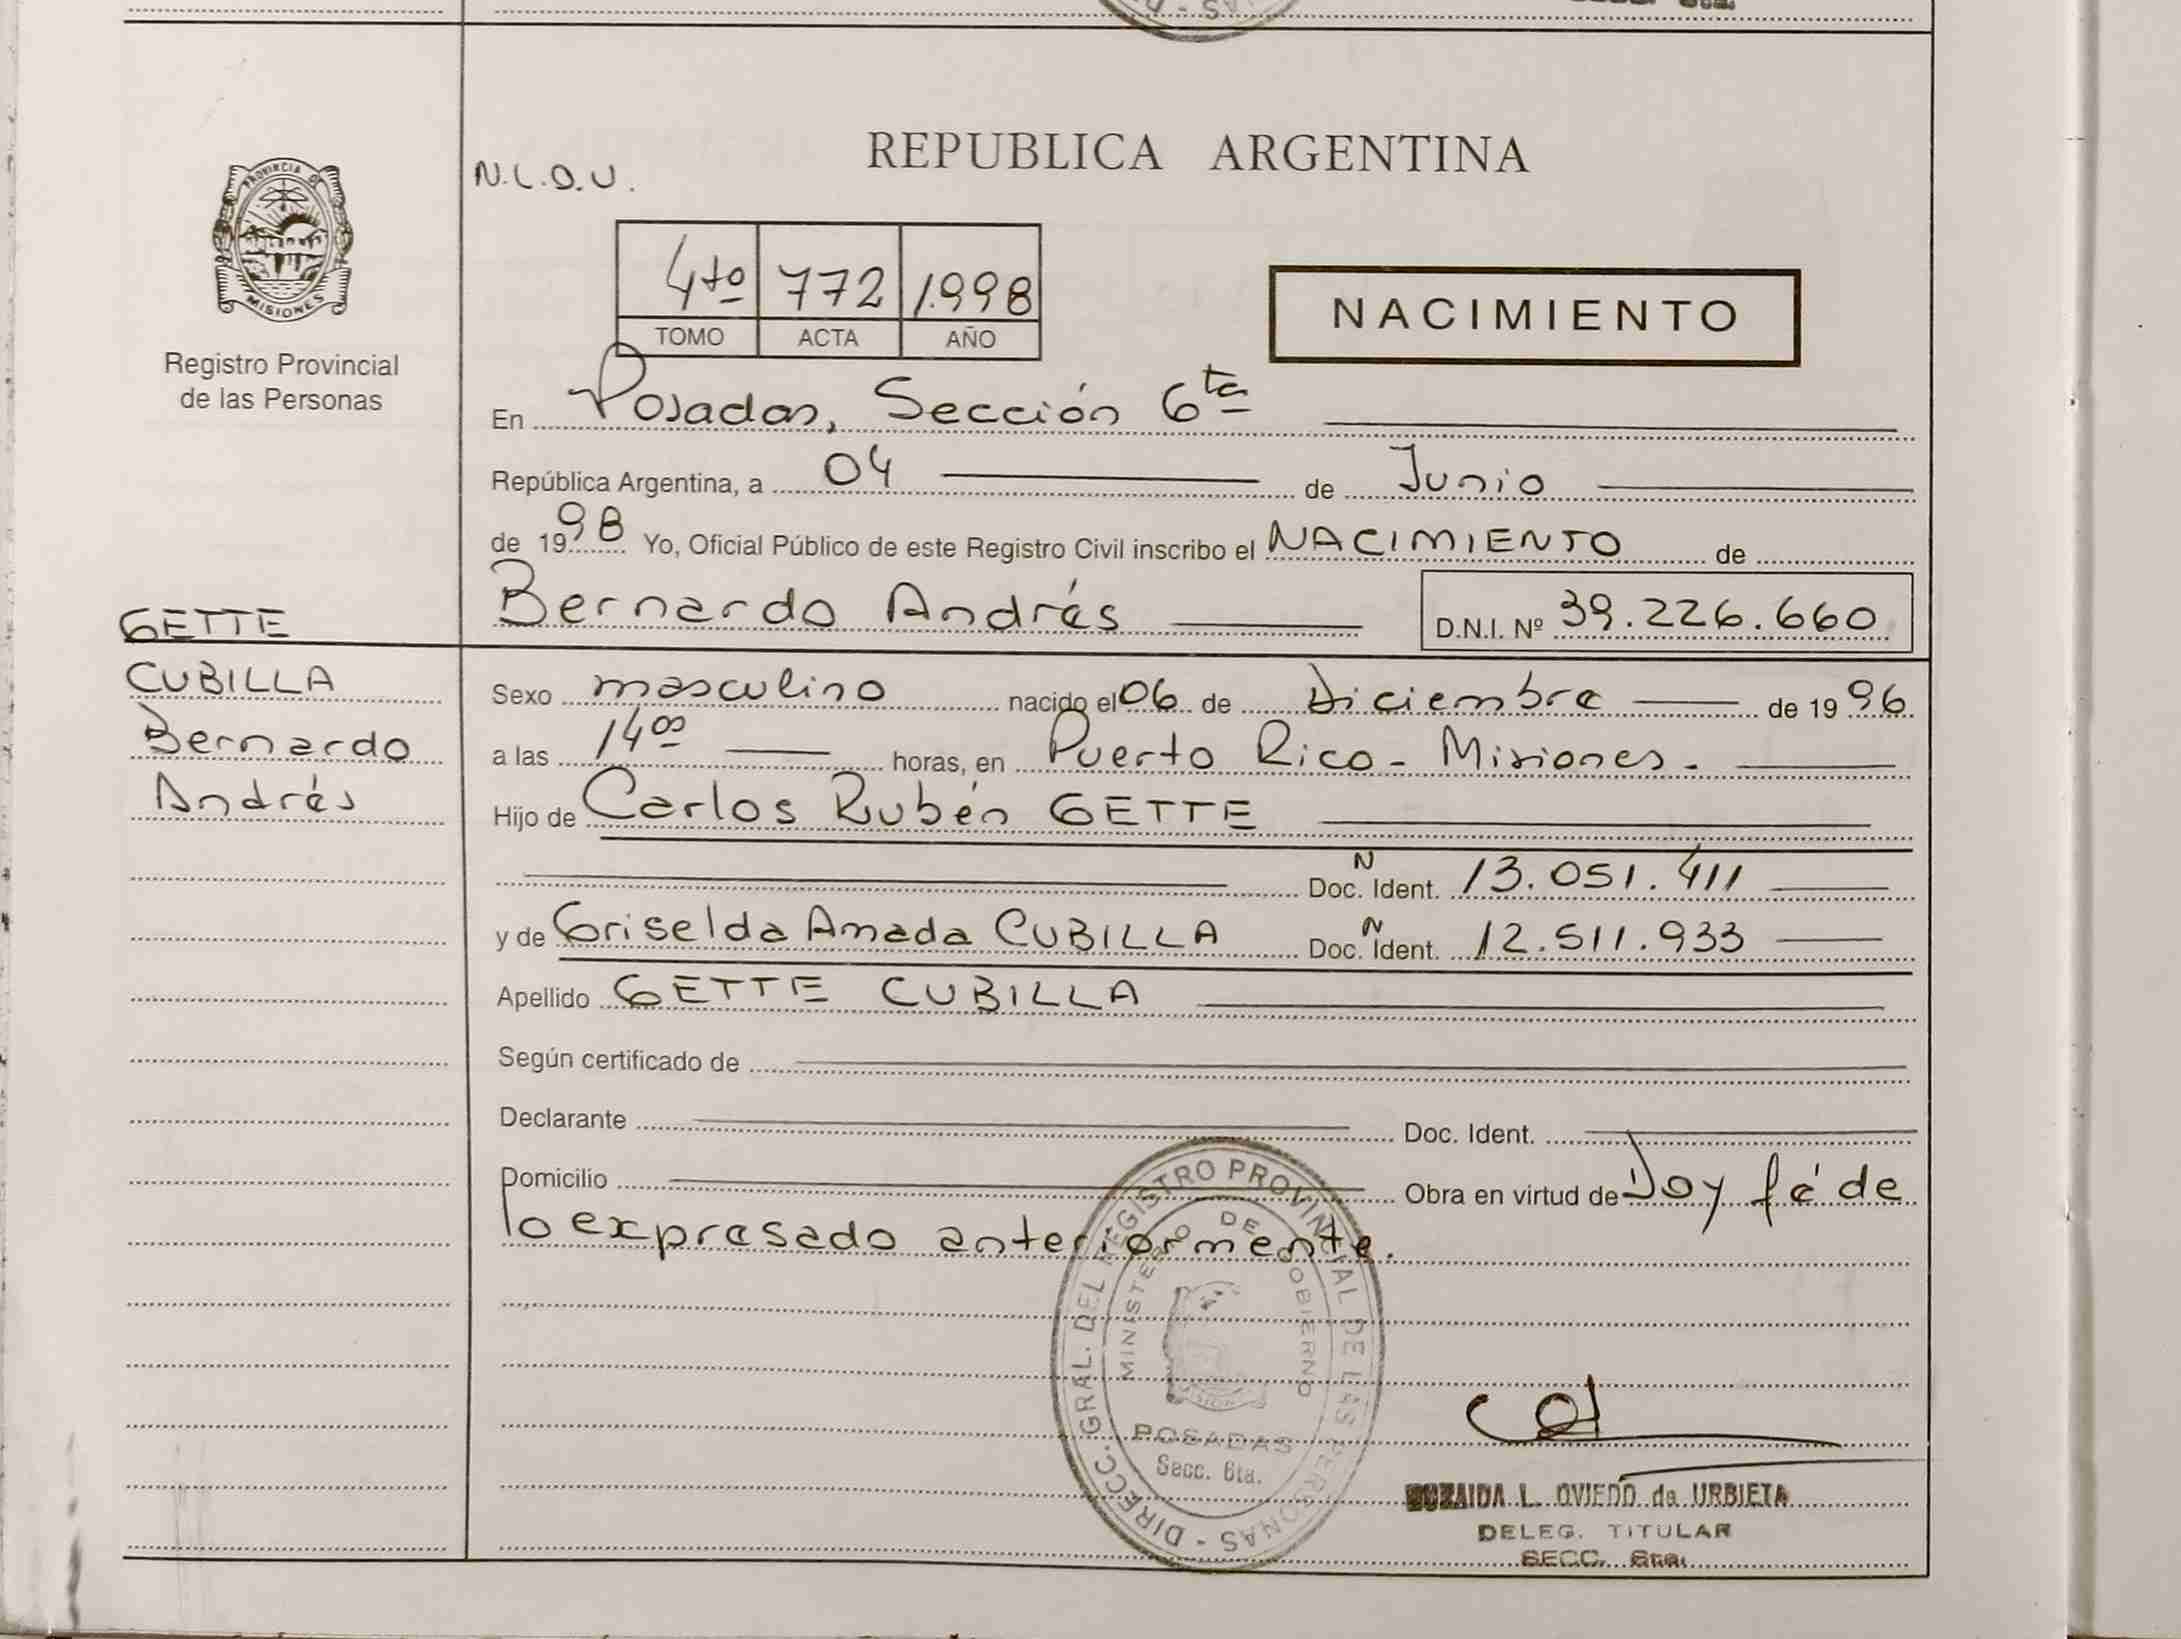 PROVINCIA DE
MISIONES
Registro Provincial
de las Personas
GETTE
CUBILLA
Bernardo
Andrés
N.L.O.U.
REPUBLICA ARGENTINA
4to 772 1.998
TOMO ACTA AÑO
NACIMIENTO
En Posadas, Sección 6ta
República Argentina, a 04 de Junio
de 1998 Yo, Oficial Público de este Registro Civil inscribo el NACIMIENTO de
Bernardo Andrés D.N.I. Nº 39.226.660
Sexo masculino nacido el 06 de Diciembre de 1996
a las 14 00 horas, en Puerto Rico - Misiones.
Hijo de Carlos Rubén GETTE
N
Doc. Ident. 13.051.411
y de Griselda Amada CUBILLA Doc. N Ident. 12.511.933
Apellido GETTE CUBILLA
Según certificado de
Declarante Doc. Ident.
Domicilio Obra en virtud de Doy fé de
lo expresado anteriormente.
DIRECC. GRAL. DEL REGISTRO PROVINCIAL DE LAS PERSONAS
MINISTERIO DE GOBIERNO
POSADAS
Secc. 6ta.
L. OVIEDO de URBIETA
DELEG. TITULAR
SECC. 6ta.